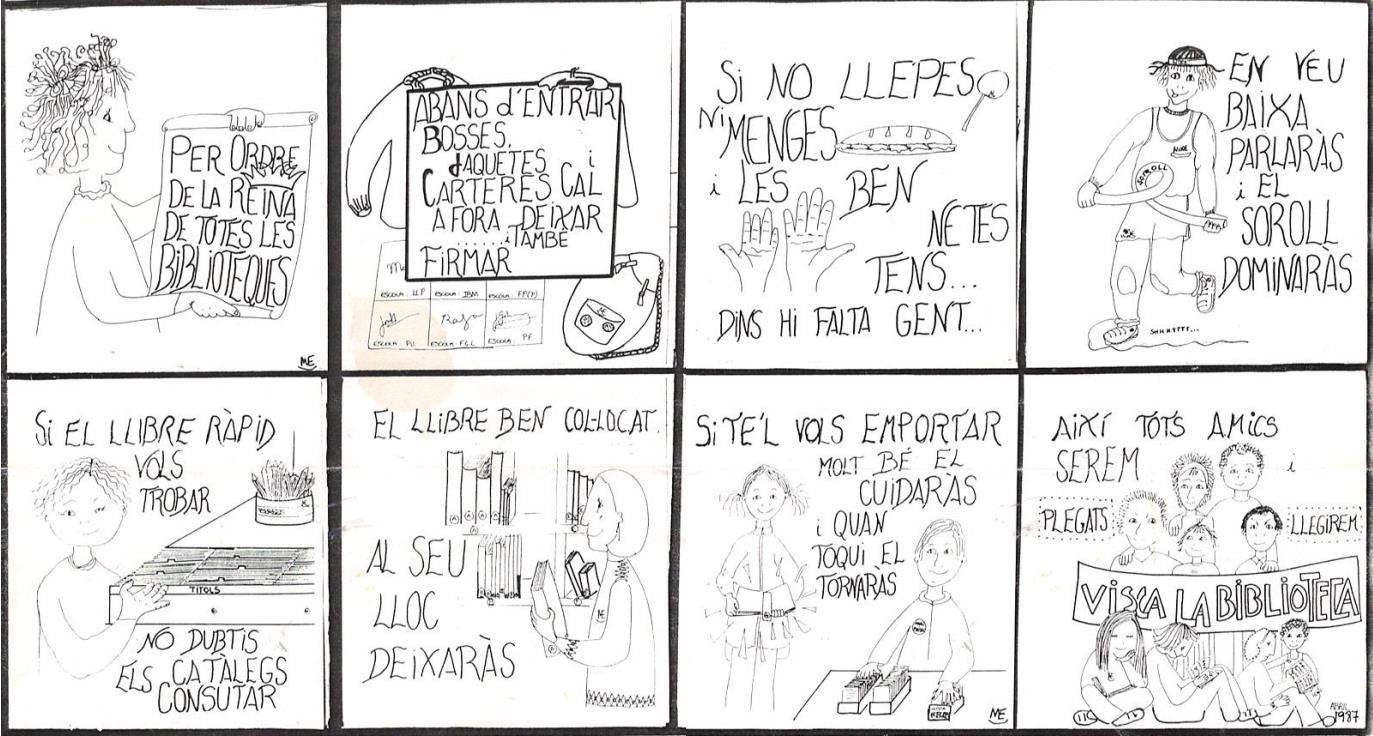 PER ORDRE
DE LA REINA
DE TOTES LES
BIBLIOTEQUES
ME
ABANS d'ENTRAR
BOSSES,
JAQUETES i
CARTERES CAL
A FORA DEIXAR
.......i TAMBÉ
FIRMAR
ESCOLA: LLP ESCOLA: IBM ESCOLA: FP(P)
ESCOLA: PLL ESCOLA: FGL ESCOLA: PF
Si NO LLEPES
Ni MENGES
i LES BEN
NETES
TENS...
DINS HI FALTA GENT...
EN VEU
BAIXA
PARLARÀS
i EL
SOROLL
DOMINARÀS
SOROLL
Si EL LLIBRE RÀPID
VOLS
TROBAR
TITOLS
NO DUBTIS
ELS CATÀLEGS
CONSUTAR
EL LLIBRE BEN COL·LOCAT
AL SEU
LLOC
DEIXARÀS
ME
Si TE'L VOLS EMPORTAR
MOLT BÉ EL
CUIDARÀS
i QUAN
TOQUI EL
TORNARÀS
ME
AIXÍ TOTS AMICS
SEREM i
PLEGATS LLEGIREM
VISCA LA BIBLIOTECA
ABRIL
1987